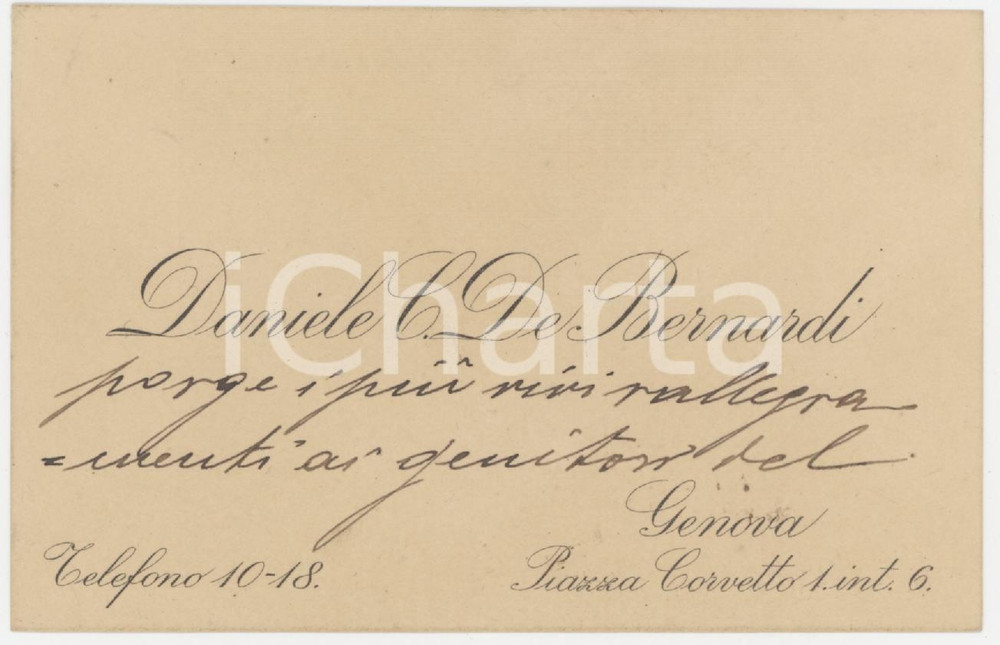 Daniele C. De Bernardi
porge i più vivi rallegra
=menti ai genitori del
Genova
Telefono 10-18.
Piazza Corvetto 1. int. 6.
iCharta